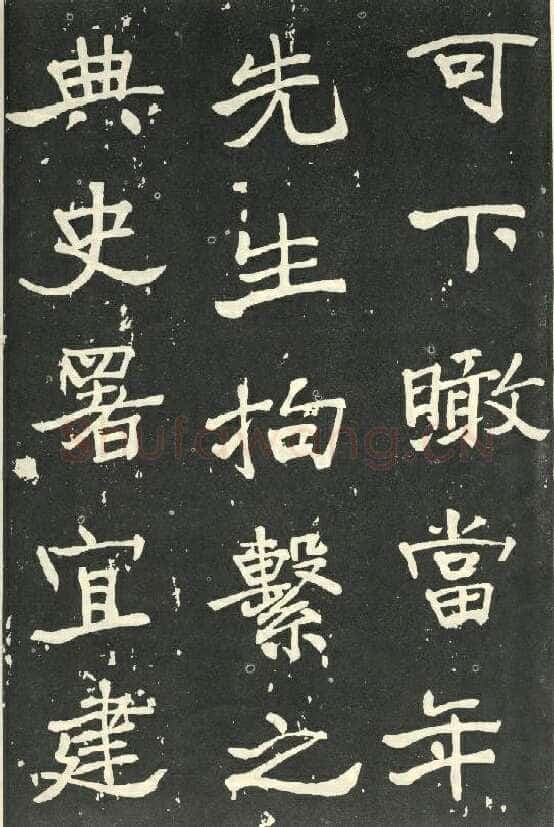 可下瞰當年
先生拘繫之
典史署宜建
Shufawang.CN